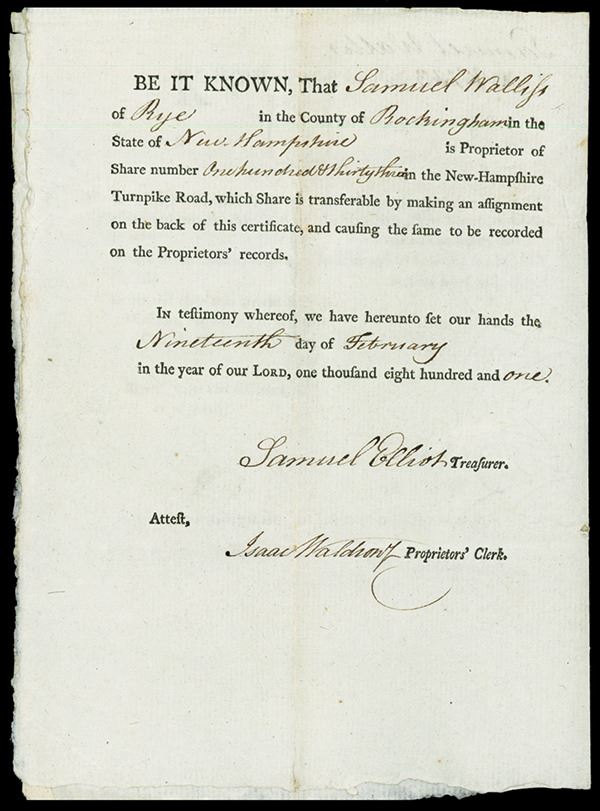 BE IT KNOWN, That Samuel Walliſs
of Rye in the County of Rockingham in the
State of New Hampshire is Proprietor of
Share number One hundred & thirty three in the New-Hampſhire
Turnpike Road, which Share is transferable by making an aſſignment
on the back of this certificate, and cauſing the ſame to be recorded
on the Proprietors' records.
IN teſtimony whereof, we have hereunto ſet our hands the
Nineteenth day of February
in the year of our LORD, one thouſand eight hundred and one.
Samuel Elliot Treaſurer.
Atteſt,
Isaac Waldron Proprietors' Clerk.